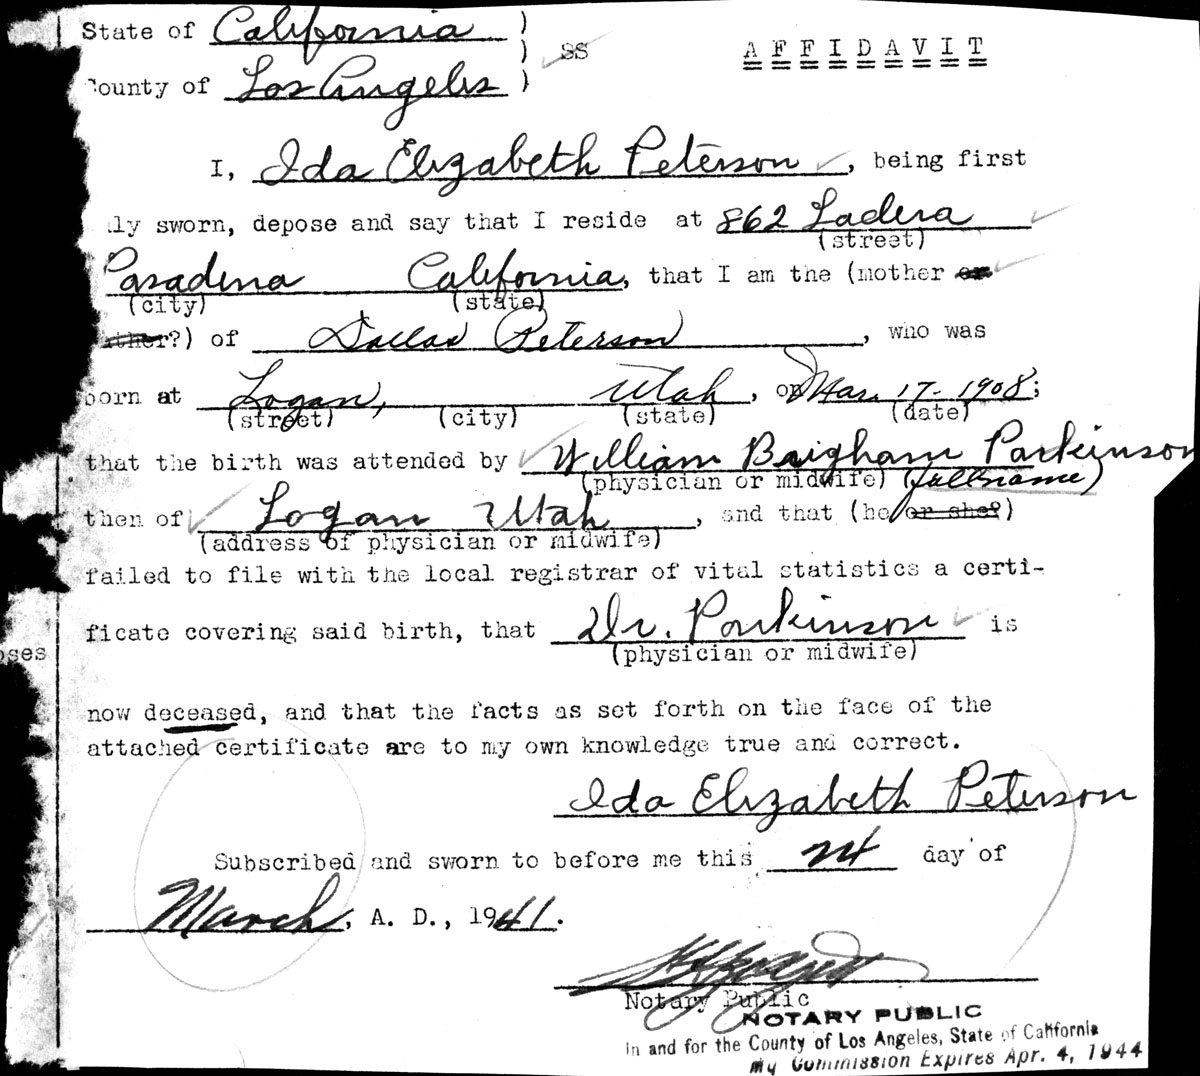 State of California )
) ss AFFIDAVIT
County of Los Angeles )
I, Ida Elizabeth Peterson, being first
ly sworn, depose and say that I reside at 862 Ladera
(street)
Pasadena California, that I am the (mother or
(city) (state)
ather?) of Dallas Peterson, who was
born at Logan, Utah, on Mar. 17-1908;
(street) (city) (state) (date)
that the birth was attended by William Brigham Parkinson
(physician or midwife) (full name)
then of Logan Utah, and that (he or she?)
(address of physician or midwife)
failed to file with the local registrar of vital statistics a certi-
ficate covering said birth, that Dr. Parkinson is
oses
(physician or midwife)
now deceased, and that the facts as set forth on the face of the
attached certificate are to my own knowledge true and correct.
Ida Elizabeth Peterson
Subscribed and sworn to before me this 24 day of
March, A. D., 1941.
Notary Public
NOTARY PUBLIC
in and for the County of Los Angeles, State of California
My Commission Expires Apr. 4, 1944